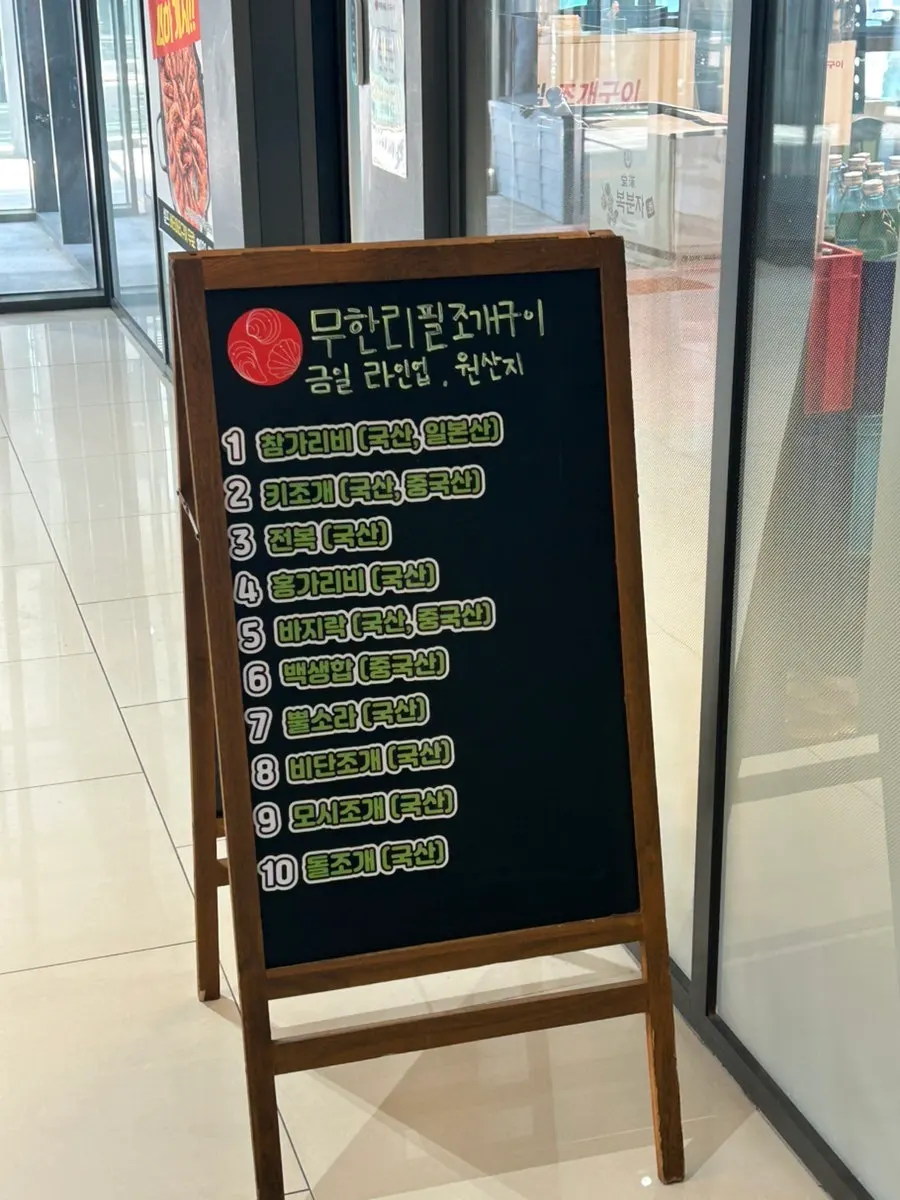 조개구이
복분자
무한리필조개구이
금일 라인업 . 원산지
1 참가리비 (국산, 일본산)
2 키조개 (국산, 중국산)
3 전복 (국산)
4 홍가리비 (국산)
5 바지락 (국산, 중국산)
6 백생합 (중국산)
7 뿔소라 (국산)
8 비단조개 (국산)
9 모시조개 (국산)
10 돌조개 (국산)